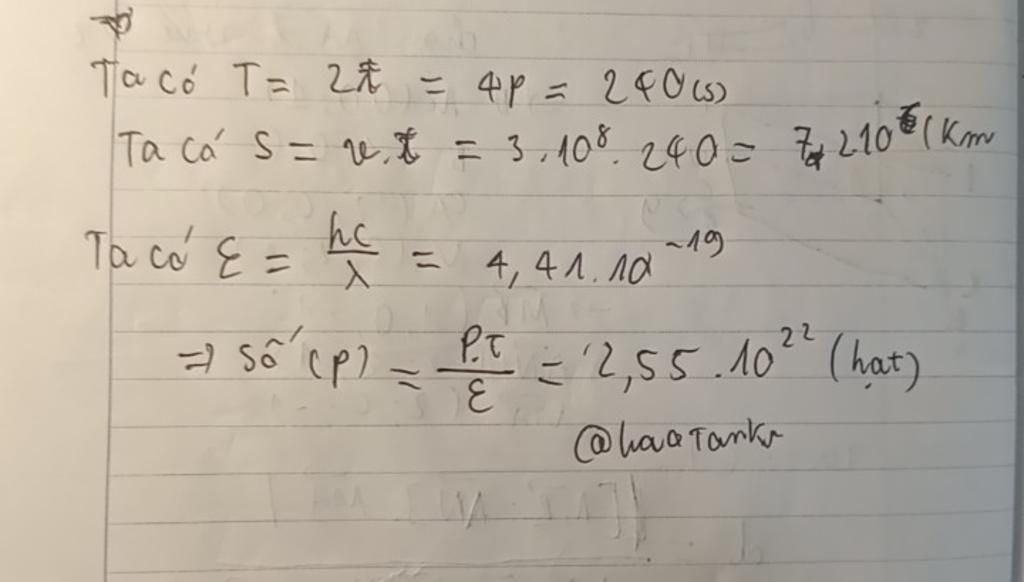 Ta có T = 2t = 4p = 240 (s)
Ta có S = v.t = 3.10⁸.240 = 7,210⁷ (Km
Ta có ε = hc/λ = 4,41.10⁻¹⁹
=> số (p) = P.t/ε = 2,55.10²² (hạt)